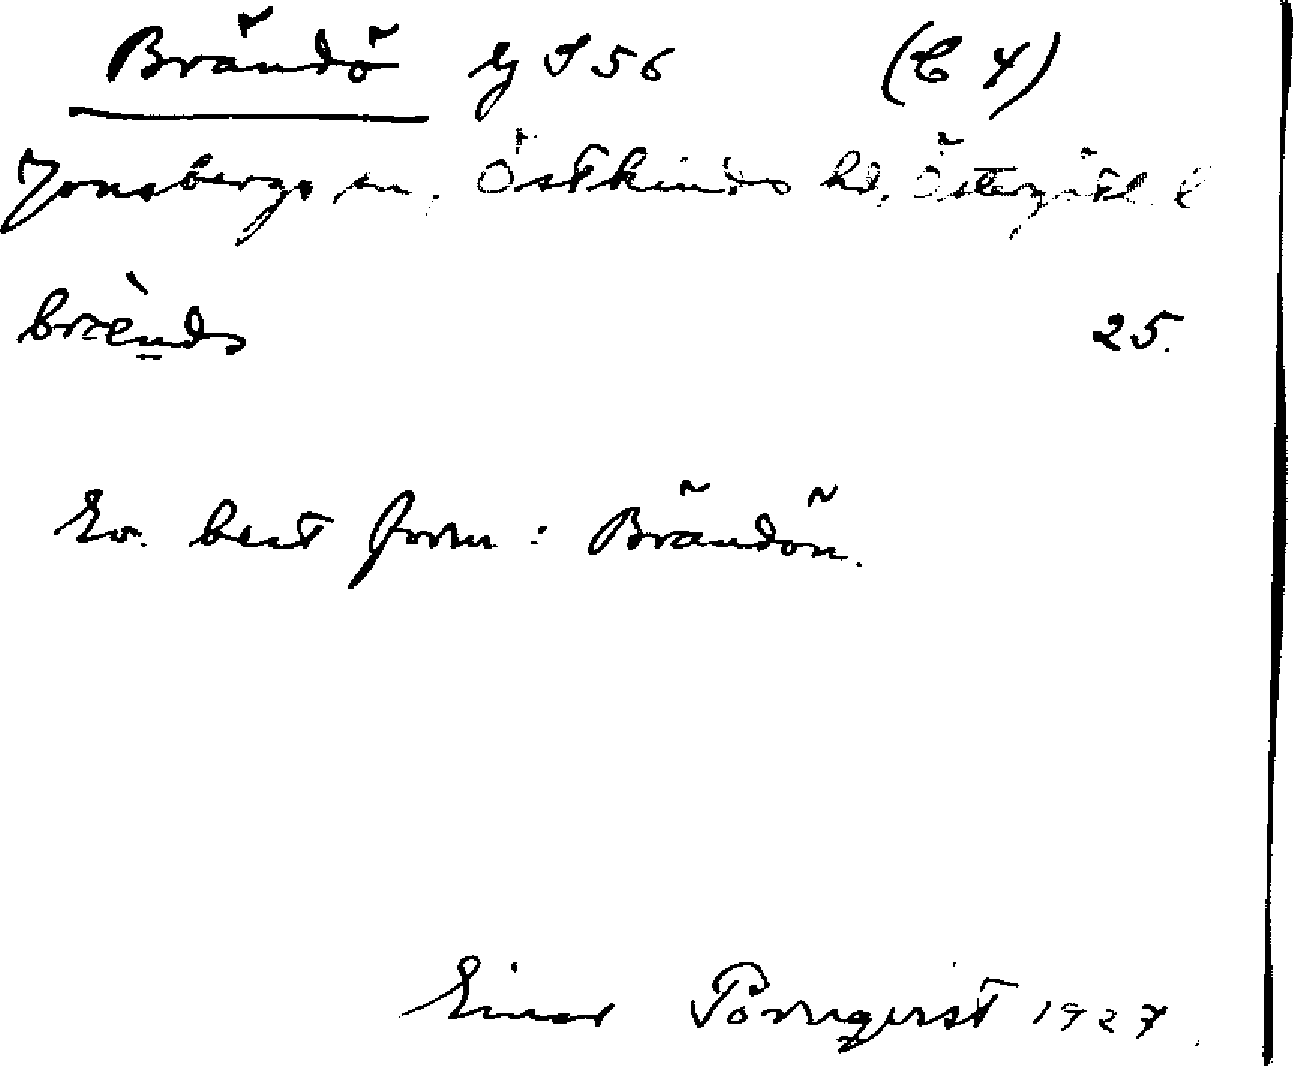 Brändö lg S 56 (C 4)
Jonsbergs sn, Östkinds hd, Östergötl. l
brǽnds 25.
Ev. best form: Brändön.
Einar Törnqvist 1927.